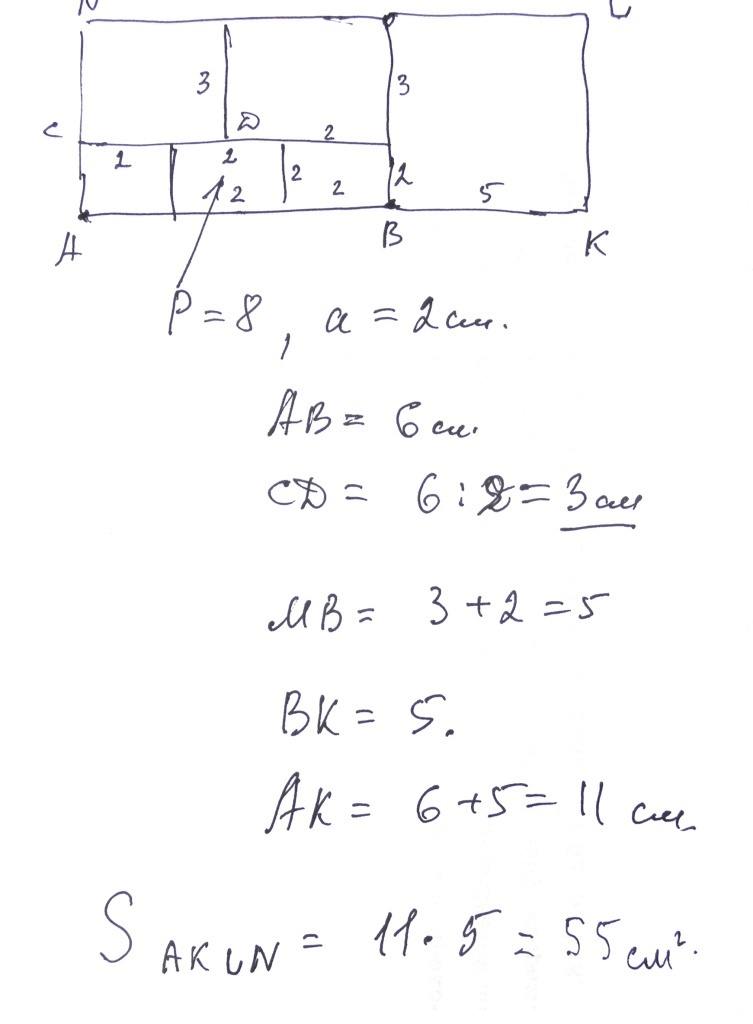 N L
3 3
C D 2
2 2 2 2
2 2 5
A B K
P = 8, a = 2 см.
AB = 6 см.
CD = 6 : 2 = 3 см
MB = 3 + 2 = 5
BK = 5.
AK = 6 + 5 = 11 см
S AKLN = 11 · 5 = 55 см².